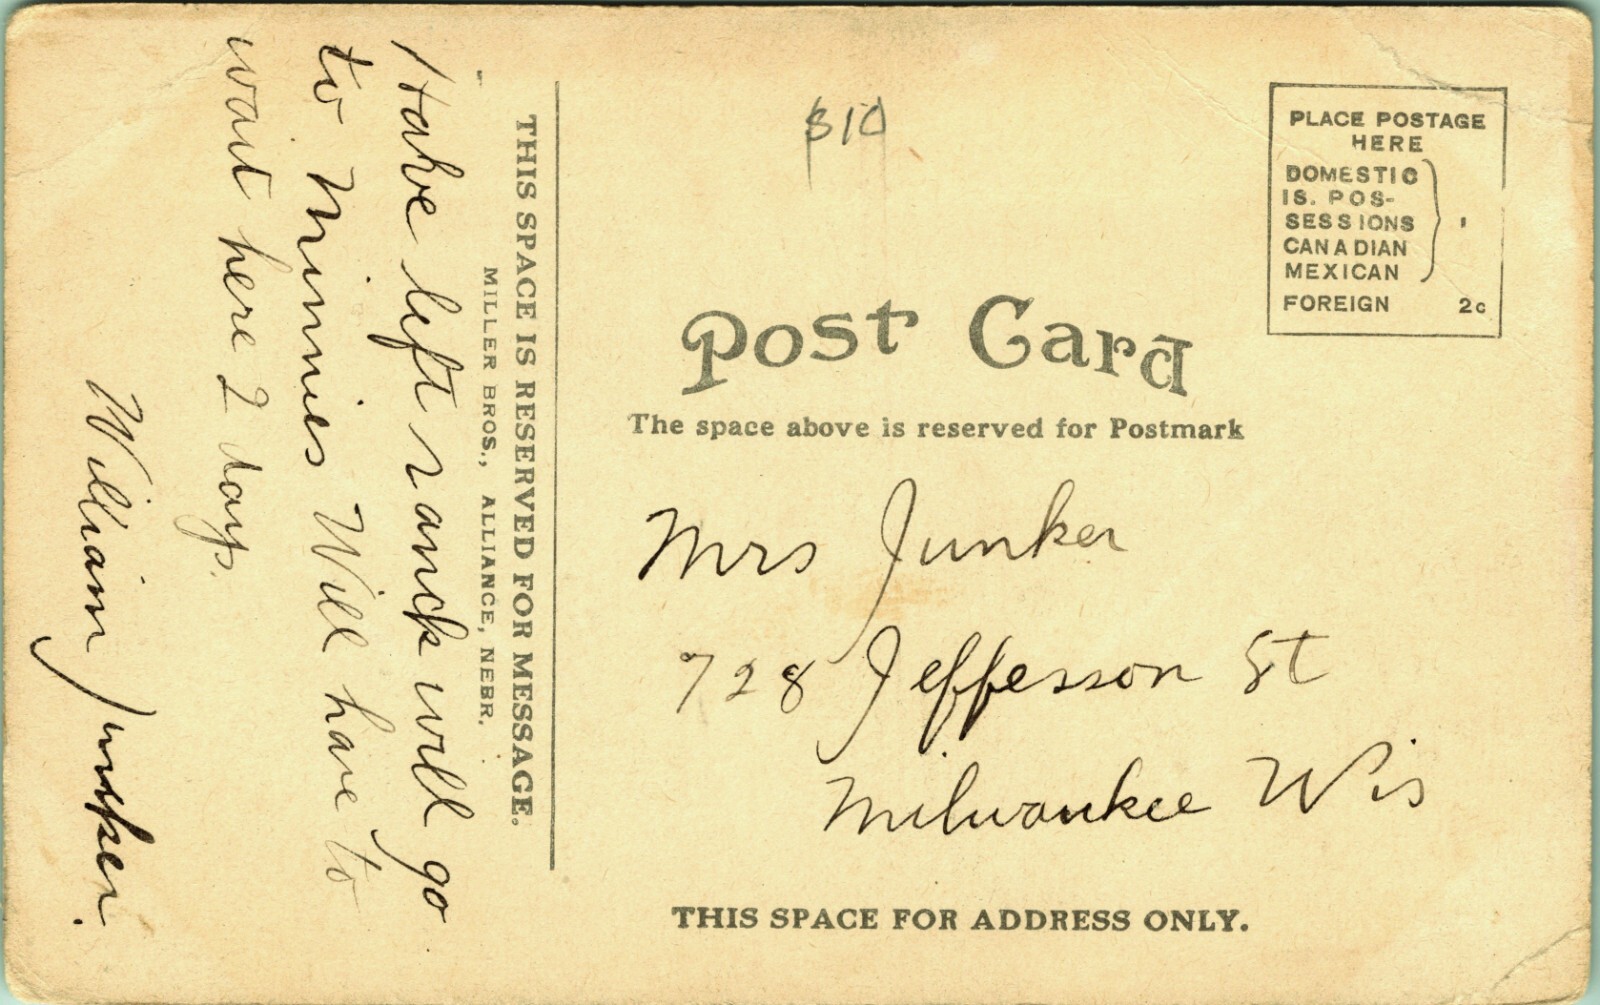 I take left ranch will go
to Minnies Will have to
wait here 2 days.
William Junker.
THIS SPACE IS RESERVED FOR MESSAGE.
MILLER BROS., ALLIANCE, NEBR.
$10
PLACE POSTAGE
HERE
DOMESTIC
IS. POS-
SESSIONS
CANADIAN
MEXICAN
FOREIGN 2c
Post Card
The space above is reserved for Postmark
Mrs Junker
728 Jeffesson St
Milwaukee Wis
THIS SPACE FOR ADDRESS ONLY.